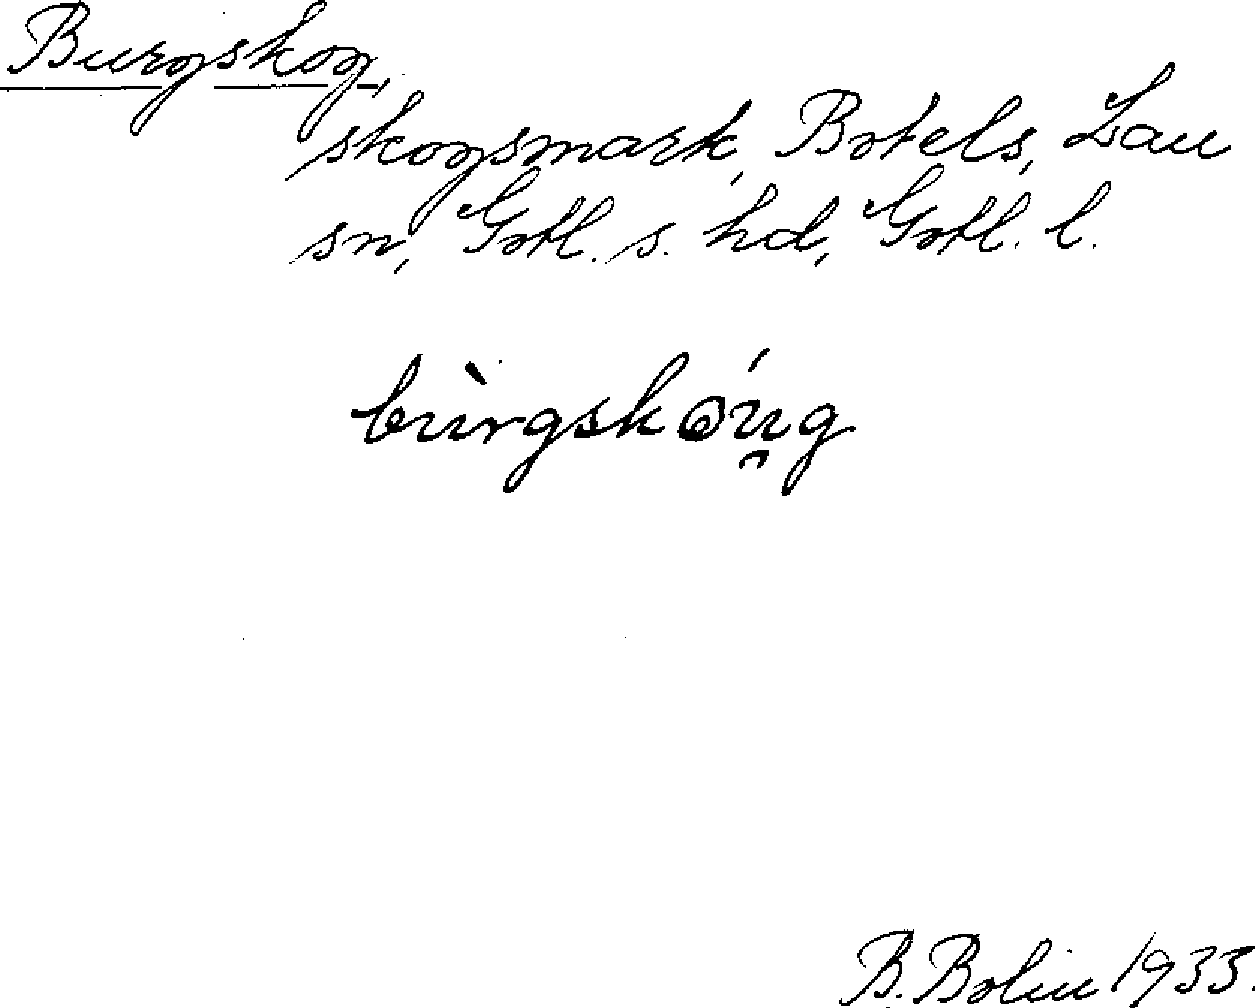 Burgskog,
skogsmark, Botels, Lau
sn, Gotl. s. hd, Gotl. l.
bùrgskǫú̯g
B. Bolin 1933.